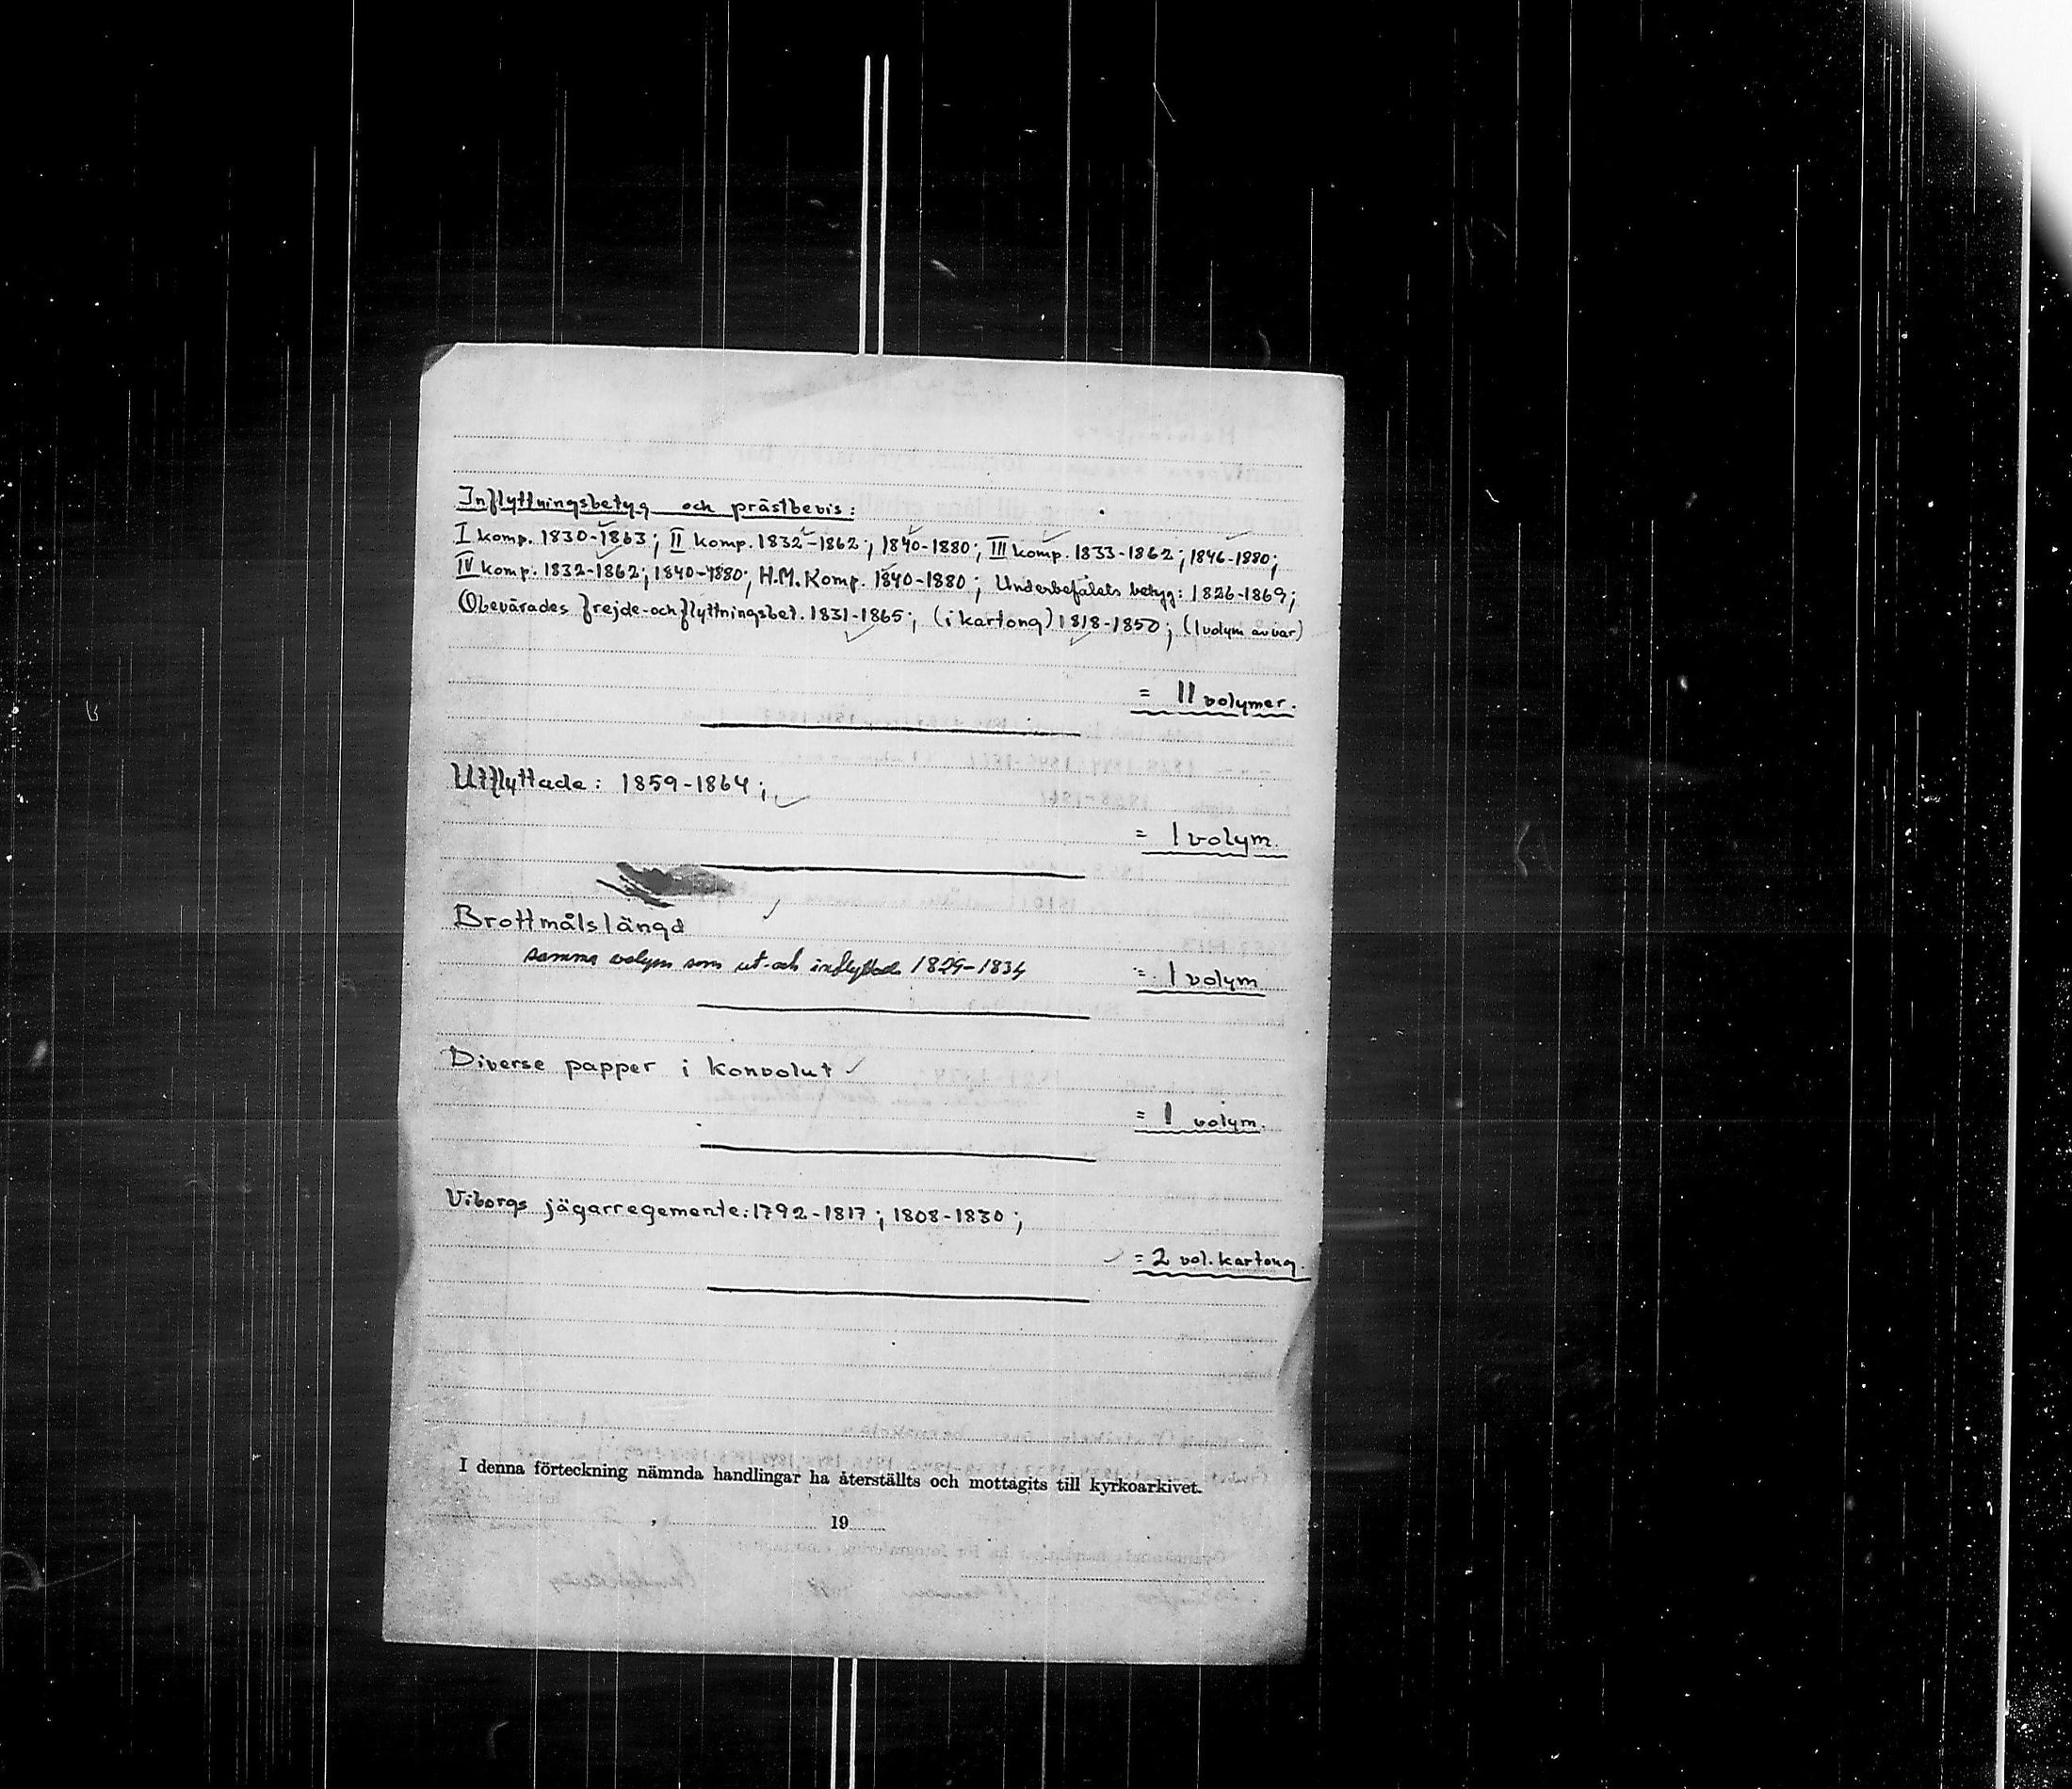 Inflyttningsbetyg och prästbevis:
I komp. 1830-1863; II komp. 1832-1862; 1840-1880; III komp. 1833-1862; 1846-1880;
IV komp. 1832-1862; 1840-1880; H.M. Komp. 1840-1880; Underbefälets betyg: 1826-1869;
Obevärades frejde-och flyttningsbet. 1831-1865; (i kartong) 1818-1850; (1 volym av var)
= 11 volymer.
Utflyttade: 1859-1864;
= 1 volym.
Brottmålslängd
samma volym som ut- och inflyttade 1829-1834 = 1 volym
Diverse papper i konvolut
= 1 volym.
Viborgs jägarregemente: 1792-1817; 1808-1830;
= 2 vol. kartong.
I denna förteckning nämnda handlingar ha återställts och mottagits till kyrkoarkivet.
19